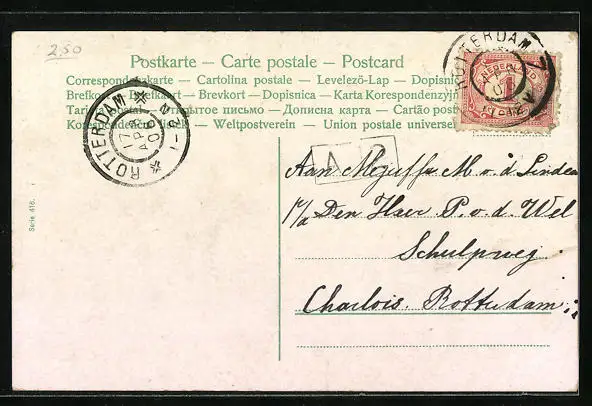 2,50
Postkarte — Carte postale — Postcard
Correspondenzkarte — Cartolina postale — Levelező-Lap — Dopisnic
Brefkort — Briefkaart — Brevkort — Dopisnica — Karta Korespondenzyjn
Tarjeta postal — Открытое письмо — Дописна карта — Cartão pos
Korespondenční lístek — Weltpostverein — Union postale universe
ROTTERDAM
NEDERLAND
1
ROTTERDAM
2-1
17 APR 06
Aan Mejuffr M v. d. Linden
p/a Den Heer P. v. d. Wel
Schulpweg
Charlois. Rotterdam
Serie 416.